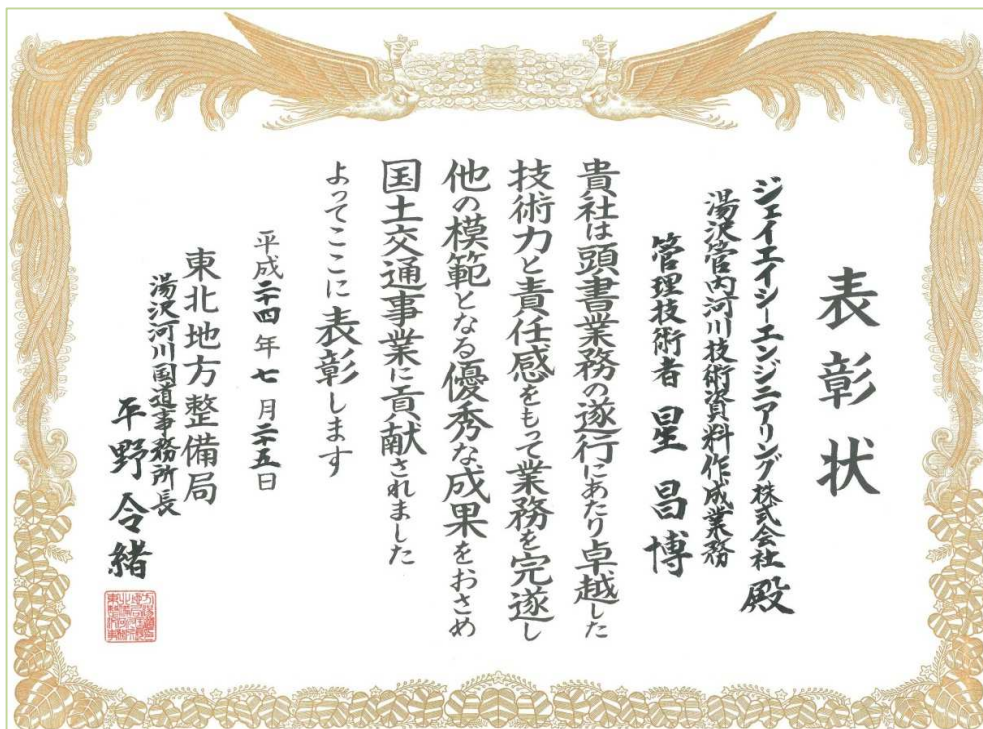 表彰状
ジェイエイシーエンジニアリング株式会社 殿
湯沢管内河川技術資料作成業務
管理技術者 星 昌博
貴社は頭書業務の遂行にあたり卓越した
技術力と責任感をもって業務を完遂し
他の模範となる優秀な成果をおさめ
国土交通事業に貢献されました
よってここに表彰します
平成二十四年七月二十五日
東北地方整備局
湯沢河川国道事務所長
平野令緒